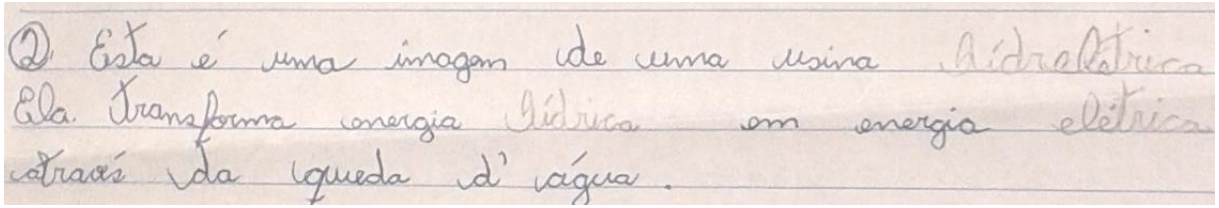 ② Esta é uma imagem de uma usina hídrelétrica
Ela transforma energia hídrica em energia elétrica
através da queda d'água.